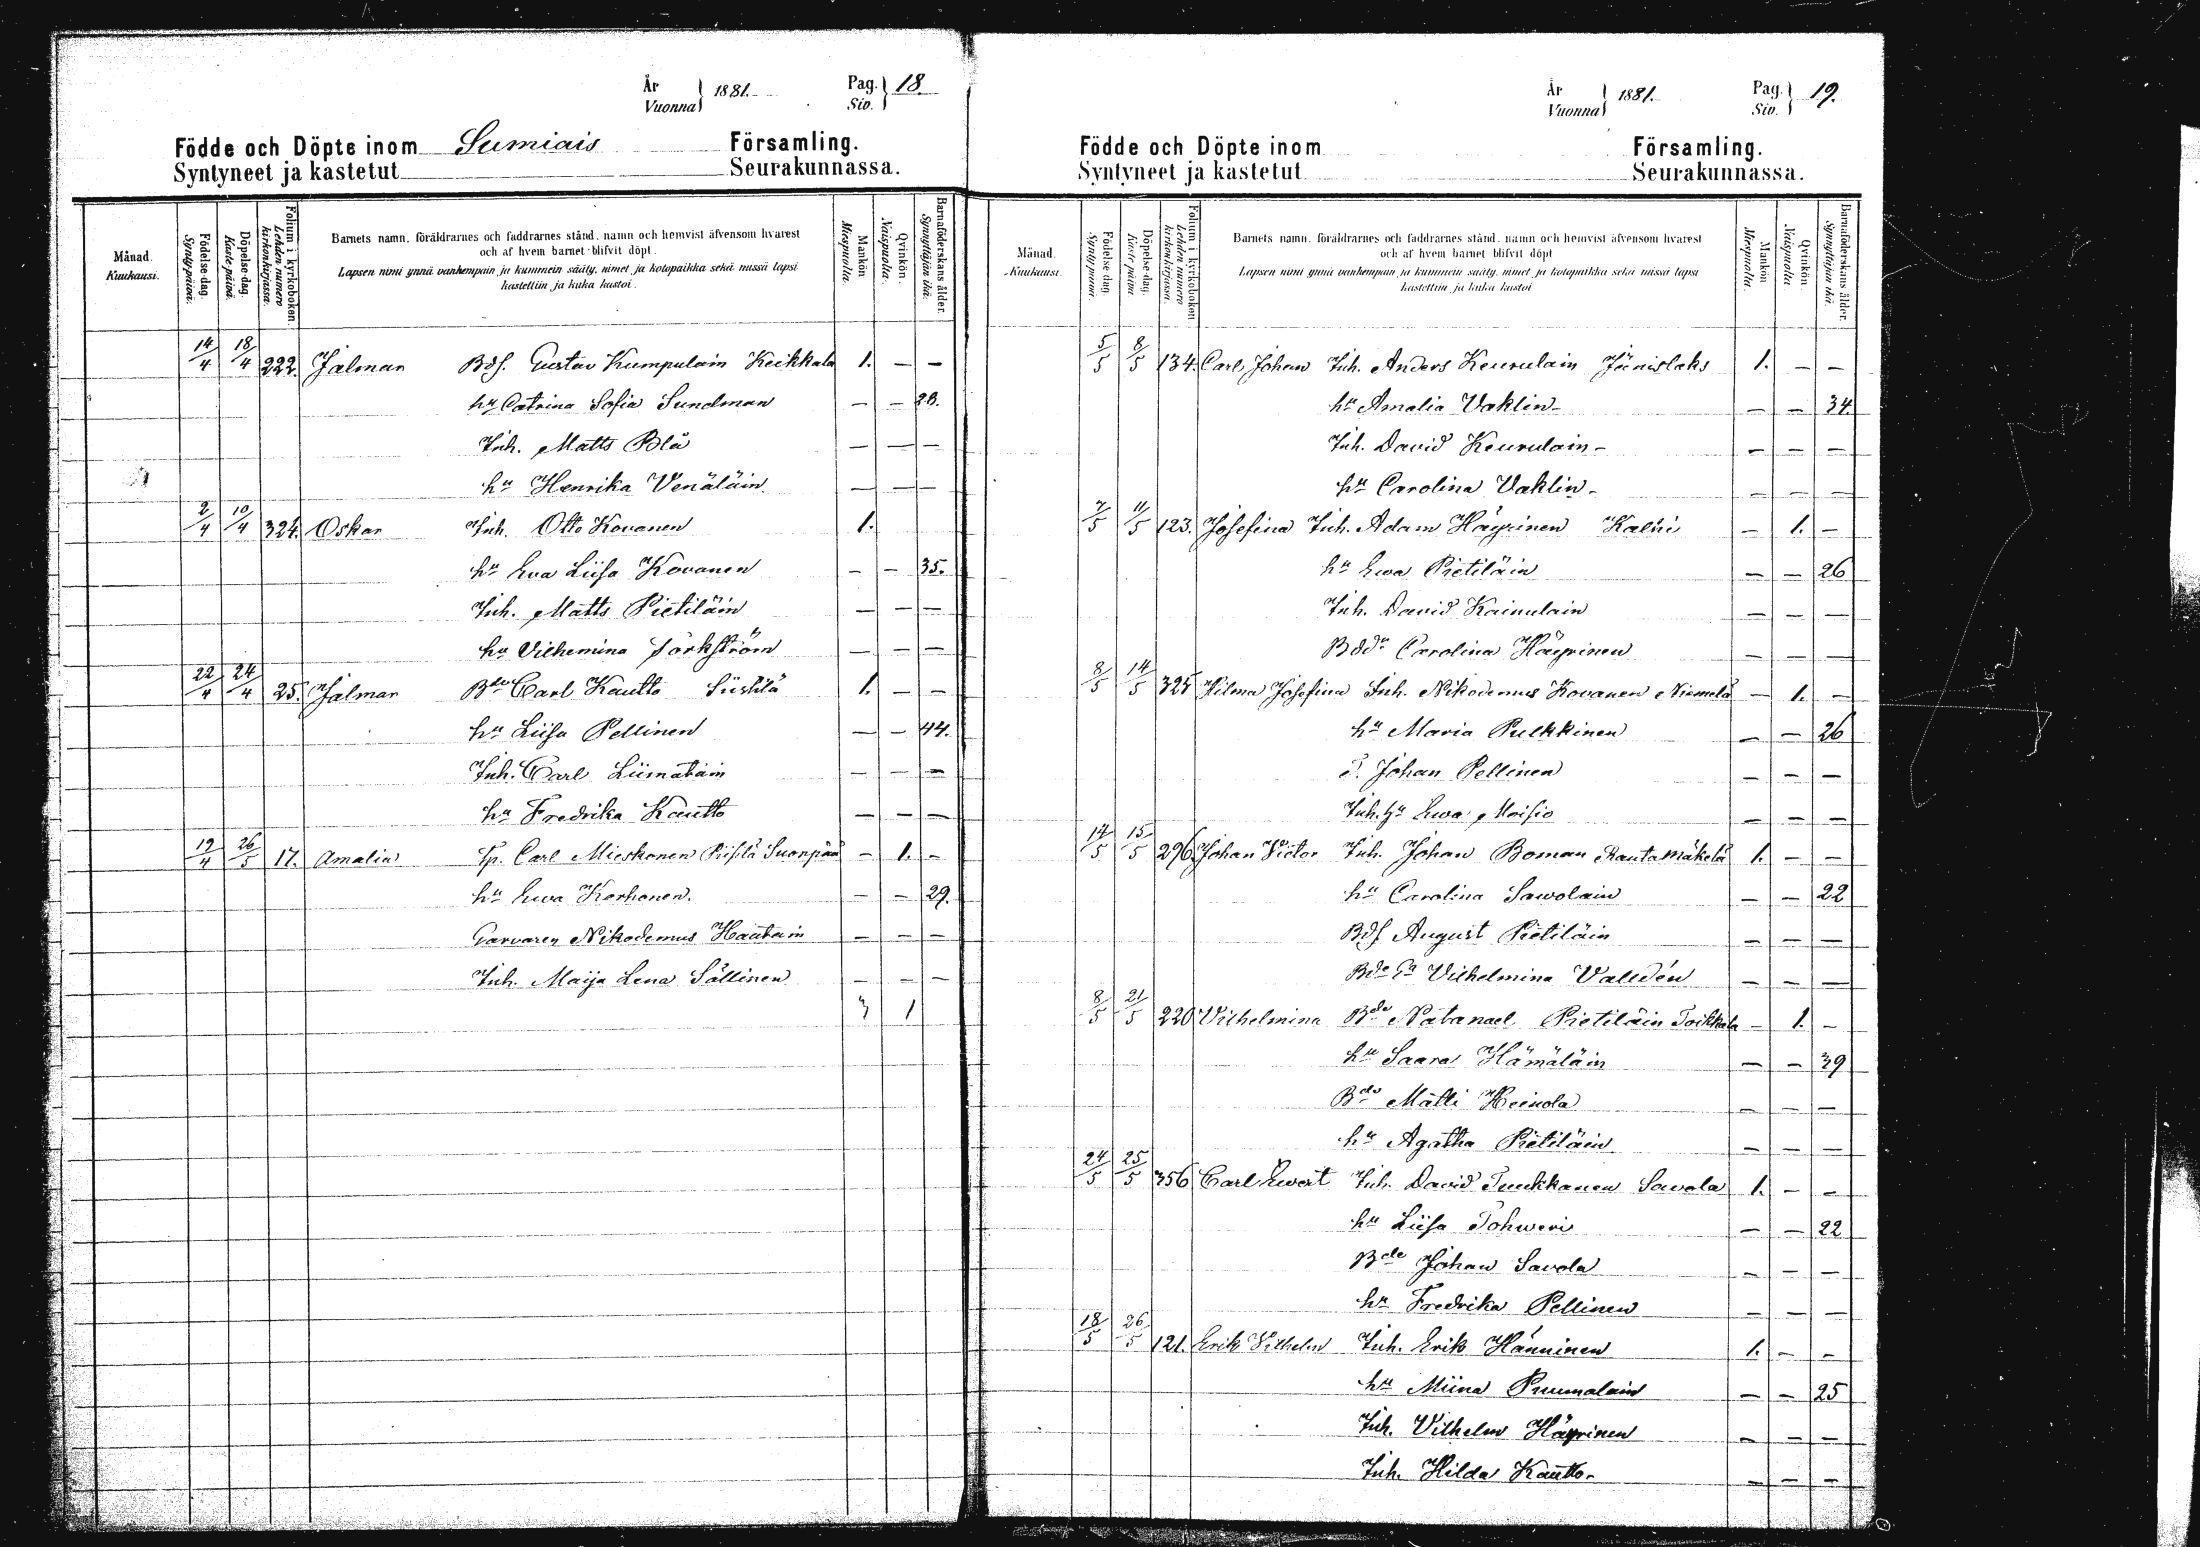 År
Vuonna } 1881.
Pag.
Siv. } 18.
Födde och Döpte inom Sumiais Församling.
Syntyneet ja kastetut Seurakunnassa.
Månad.
Kuukausi.
Födelse-dag.
Synty-päivä.
Döpelse-dag.
Kaste-päivä.
Folium i kyrkoboken.
Lehden numero kirkonkirjassa.
Barnets namn, föräldrarnes och faddrarnes stånd, namn och hemvist äfvensom hvarest
och af hvem barnet blifvit döpt.
Lapsen nimi ynnä vanhempain ja kummein sääty, nimet ja kotopaikka sekä missä lapsi
kastettiin ja kuka kastoi.
Mankön.
Miespuolia.
Qvinkön.
Naispuolia.
Barnaföderskans ålder.
Synnyttäjän ikä.
14/4 18/4 222. Jalmar Bdf. Gustav Kumpulain Keikkala 1. — —
hu Catrina Sofia Sundman — — 28.
Inh. Matts Blå — — —
hu Henrika Venäläin. — — —
2/4 10/4 324. Oskar Inh. Otto Kovanen 1.
hu Eva Liisa Kovanen — — 35.
Inh. Matts Pietiläin — — —
hu Vilhemina — — —
22/4 24/4 25. Jalmar Bde Carl Kautto 1. — —
hu Liisa Pellinen — — 44.
Inh. Carl Liimatain — — —
hu Fredrika Kautto — — —
19/4 26/5 17. Amalia Tp. Carl Mieskonen Suonpää — 1. —
hu Ewa Korhonen. — — 29.
Garvaren Nikodemus Hautain — — —
Inh. Maija Lena Sällinen — — —
3 1
År
Vuonna } 1881.
Pag.
Siv. } 19.
Födde och Döpte inom Församling.
Syntyneet ja kastetut Seurakunnassa.
Månad.
Kuukausi.
Födelse-dag.
Synty-päivä.
Döpelse-dag.
Kaste-päivä.
Folium i kyrkoboken.
Lehden numero kirkonkirjassa.
Barnets namn, föräldrarnes och faddrarnes stånd, namn och hemvist äfvensom hvarest
och af hvem barnet blifvit döpt
Lapsen nimi ynnä vanhempain ja kummein sääty, nimet ja kotopaikka sekä missä lapsi
kastettiin ja kuka kastoi
Mankön.
Miespuolia.
Qvinkön.
Naispuolia.
Barnaföderskans ålder.
Synnyttäjän ikä.
5/5 8/5 134. Carl Johan Inh. Anders Keurulain Jänislaks 1. — —
hu Amalia Vaklin — — 34
Inh. David Keurulain — — —
hu Carolina Vaklin — — —
7/5 11/5 123. Josefina Inh. Adam Häyrinen — 1. —
hu Ewa Pietiläin — — 26
Inh. David Kainulain — — —
Carolina Häyrinen — — —
8/5 14/5 325 Hilma Josefina Inh. Nikodemus Kovanen Niemelä — 1. —
hu Maria Pulkkinen — — 26
Johan Pellinen — — —
Inh. hu Ewa Moisio — — —
14/5 15/5 296 Johan Victor Inh. Johan Boman Rautamäkelä 1. — —
hu Carolina Sawolain — — 22
Bdf August Pietiläin — — —
Vilhelmina Valldén — — —
8/5 21/5 220 Vilhelmina Bde Natanael Pietiläin Toikkala — 1. —
hu Saara Hämäläin — — 39
Bde Matti Heinola — — —
hu Agatha Pietiläin — — —
24/5 25/5 356 Carl Ewert Inh. David Tuukkanen Savola 1. — —
hu Liisa Pohweri — — 22
Bde Johan Savola — — —
hu Fredrika Pellinen — — —
18/5 26/5 121. Erik Vilhelm Inh. Erik Hänninen 1. — —
hu Miina Puumalain — — 25
Inh. Vilhelm Häyrinen — — —
Inh. Hilda Kautto — — —